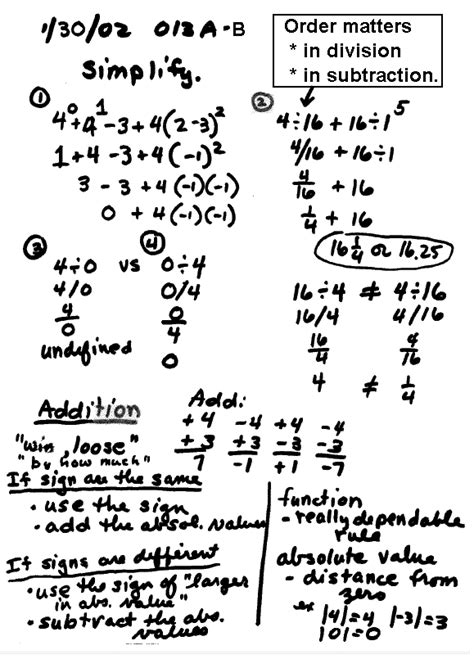 1/30/02 013A-B
Order matters
* in division
* in subtraction.
Simplify.
①
4⁰+4¹-3+4(2-3)²
1+4-3+4(-1)²
3-3+4(-1)(-1)
0+4(-1)(-1)
②
4÷16+16÷1⁵
4/16+16÷1
4/16+16
1/4+16
16 1/4 or 16.25
③
4÷0
4/0
4/0
undefined
vs
④
0÷4
0/4
0/4
0
16÷4 ≠ 4÷16
16/4 4/16
16/4 4/16
4 ≠ 1/4
Addition
"win, loose"
"by how much"
If sign are the same
• use the sign
• add the absol. values
If signs are different
• use the sign of "larger
in abs. value"
• subtract the abs.
values
Add:
+4 -4 +4 -4
+3 +3 -3 -3
7 -1 +1 -7
function
- really dependable
rule
absolute value
- distance from
zero
ex |4|=4 |-3|=3
|0|=0